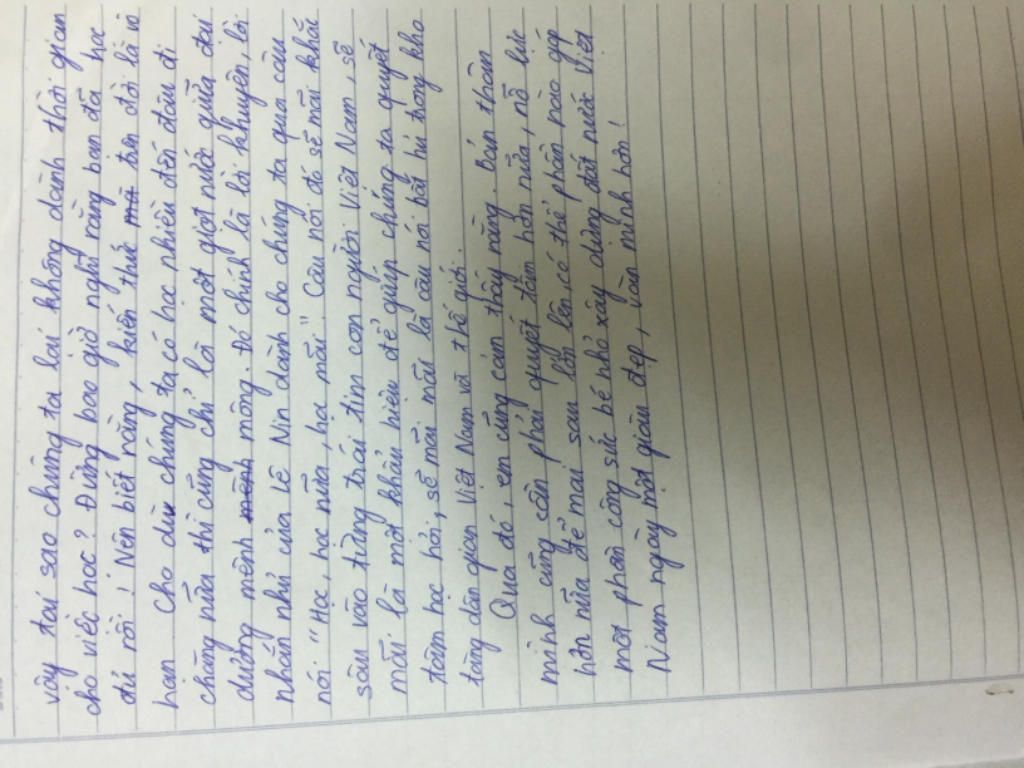 vậy tại sao chúng ta lại không dành thời gian
cho việc học? Đừng bao giờ nghĩ rằng bạn đã học
đủ rồi! Nên biết rằng, kiến thức trên đời là vô
hạn cho dù chúng ta có học nhiều đến đâu đi
chăng nữa thì cũng chỉ là một giọt nước giữa đại
dương mênh mông. Đó chính là lời khuyên, lời
nhắn nhủ của Lê Nin dành cho chúng ta qua câu
nói "Học, học nữa, học mãi" Câu nói đó sẽ mãi khắc
sâu vào từng trái tim con người Việt Nam, sẽ
mãi là một khẩu hiệu để giúp chúng ta quyết
tâm học hỏi, sẽ mãi mãi là câu nói bất hủ trong kho
tàng dân gian Việt Nam và thế giới.
Qua đó, em cũng cảm thấy rằng. bản thân
mình cũng cần phải quyết tâm hơn nữa, nỗ lực
hơn nữa để mai sau lớn lên có thể phần nào góp
một phần công sức bé nhỏ xây dựng đất nước Việt
Nam ngày một giàu đẹp, văn minh hơn!